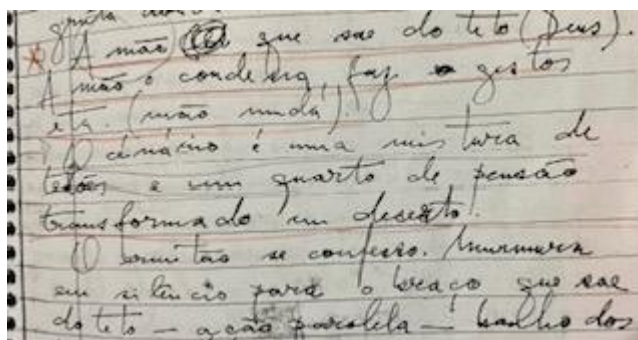 A mão que sae do teto (Deus).
A mão o condena, faz gestos
etc. (mão muda)
O cenário é uma mistura de
telões e um quarto de pensão
transformado em deserto.
O ermitão se confessa. Murmura
em silêncio para o braço que sae
do teto — ação paralela — banho dos